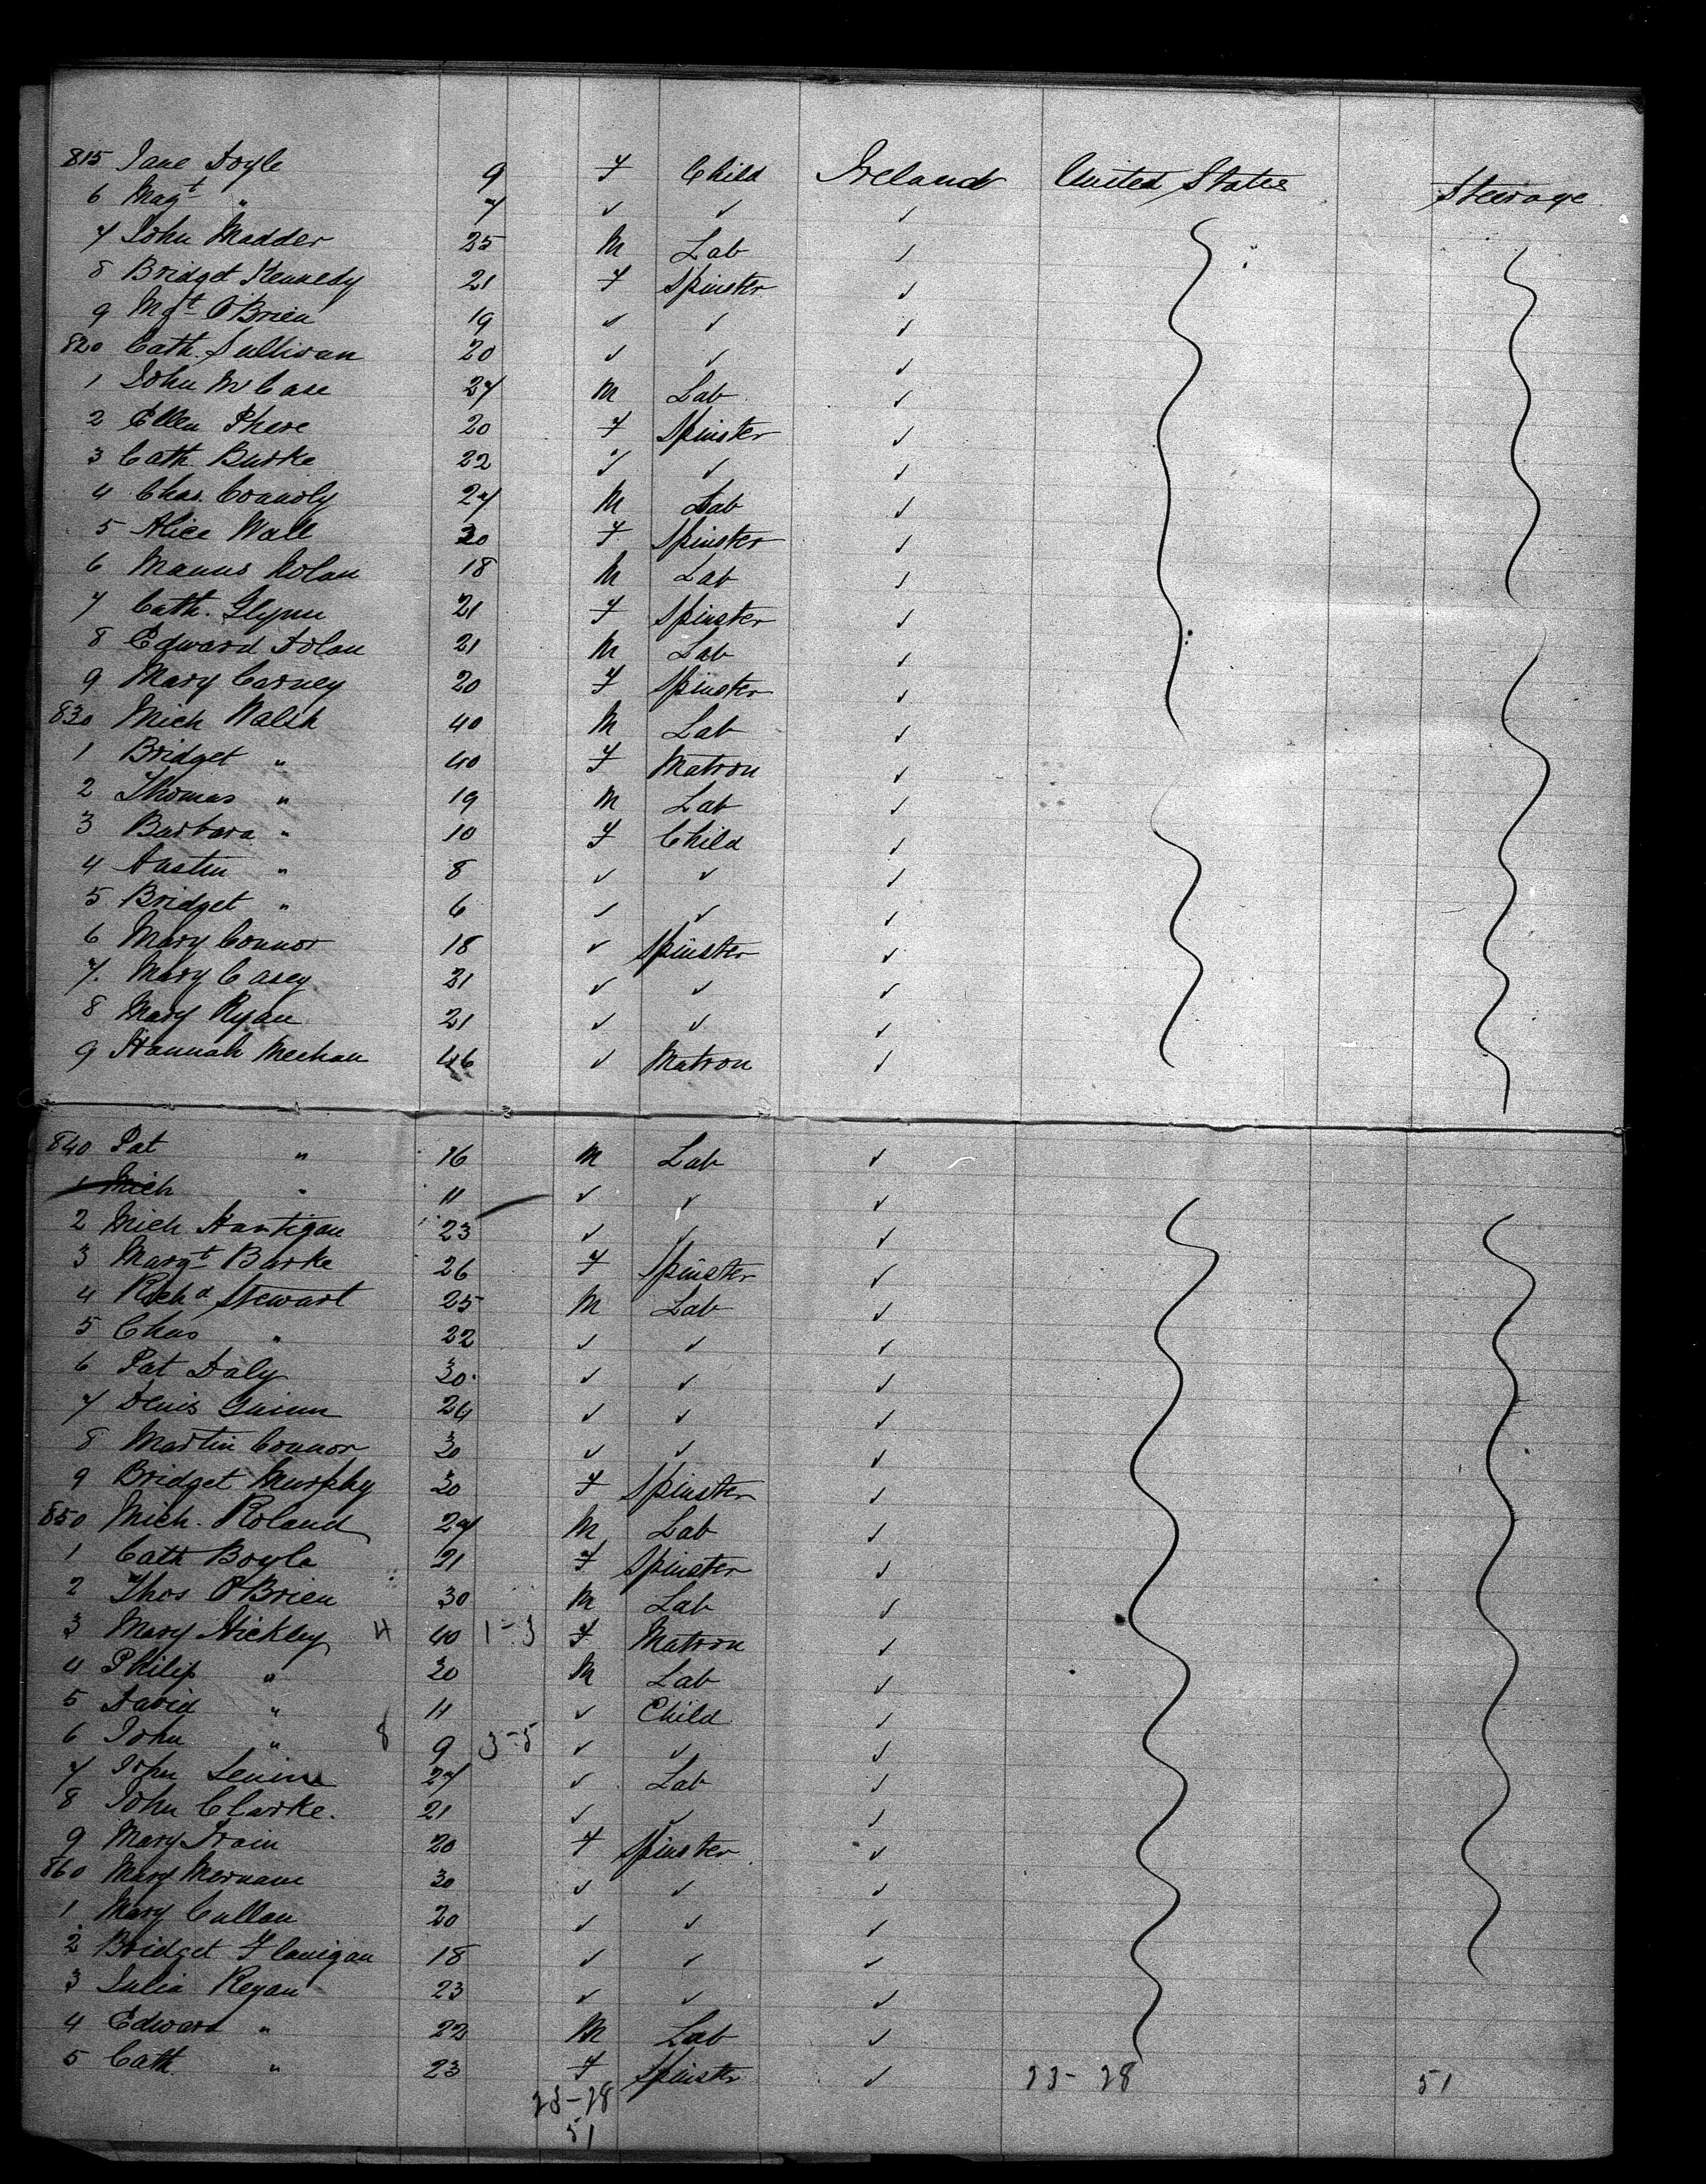 815 Jane Doyle 9 F Child Ireland United States Steerage
6 Magt " 7 ✓ ✓ ✓
7 John Madder 25 M Lab ✓
8 Bridget Kennedy 21 F Spinster ✓
9 Mgt O'Brien 19 ✓ ✓ ✓
820 Cath. Sullivan 20 ✓ ✓ ✓
1 John McCase 27 M Lab ✓
2 Ellen Phere 20 F Spinster ✓
3 Cath Burke 22 ✓ ✓ ✓
4 Chas. Connoly 27 M Lab ✓
5 Alice Wall 30 F Spinster ✓
6 Manus Nolan 18 M Lab ✓
7 Cath. Glynn 21 F Spinster ✓
8 Edward Dolan 21 M Lab ✓
9 Mary Carney 20 F Spinster ✓
830 Mich Walsh 40 M Lab ✓
1 Bridget " 40 F Matron ✓
2 Thomas " 19 M Lab ✓
3 Barbara " 10 F Child ✓
4 Austin " 8 ✓ ✓ ✓
5 Bridget " 6 ✓ ✓ ✓
6 Mary Connor 18 ✓ Spinster ✓
7. Mary Casey 21 ✓ ✓ ✓
8 Mary Ryan 21 ✓ ✓ ✓
9 Hannah Meehan 46 ✓ Matron ✓
840 Pat " 16 M Lab ✓
1 Mich " 11 ✓ ✓ ✓
2 Mich Hartigan 23 ✓ ✓ ✓
3 Margt Burke 26 F Spinster ✓
4 Richd Stewart 25 M Lab ✓
5 Chas " 22 ✓ ✓ ✓
6 Pat Daly 30 ✓ ✓ ✓
7 Denis Guinn 24 ✓ ✓ ✓
8 Martin Connor 30 ✓ ✓ ✓
9 Bridget Murphy 30 F Spinster ✓
850 Mich. Roland 27 M Lab ✓
1 Cath Boyle 21 F Spinster ✓
2 Thos O'Brien 30 M Lab ✓
3 Mary Hickley 4 40 1-3 F Matron ✓
4 Philip " 20 M Lab ✓
5 David " 11 ✓ Child ✓
6 John " 8 9 3-5 ✓ ✓ ✓
7 John 27 ✓ Lab ✓
8 John Clarke. 21 ✓ ✓ ✓
9 Mary Train 20 F Spinster ✓
860 Mary Mernane 30 ✓ ✓ ✓
1 Mary Cullan 20 ✓ ✓ ✓
2 Bridget Flanigan 18 ✓ ✓ ✓
3 Julia Regan 23 ✓ ✓ ✓
4 Edward " 22 M Lab ✓
5 Cath " 23 F Spinster ✓ 23-28 51
23-28
51